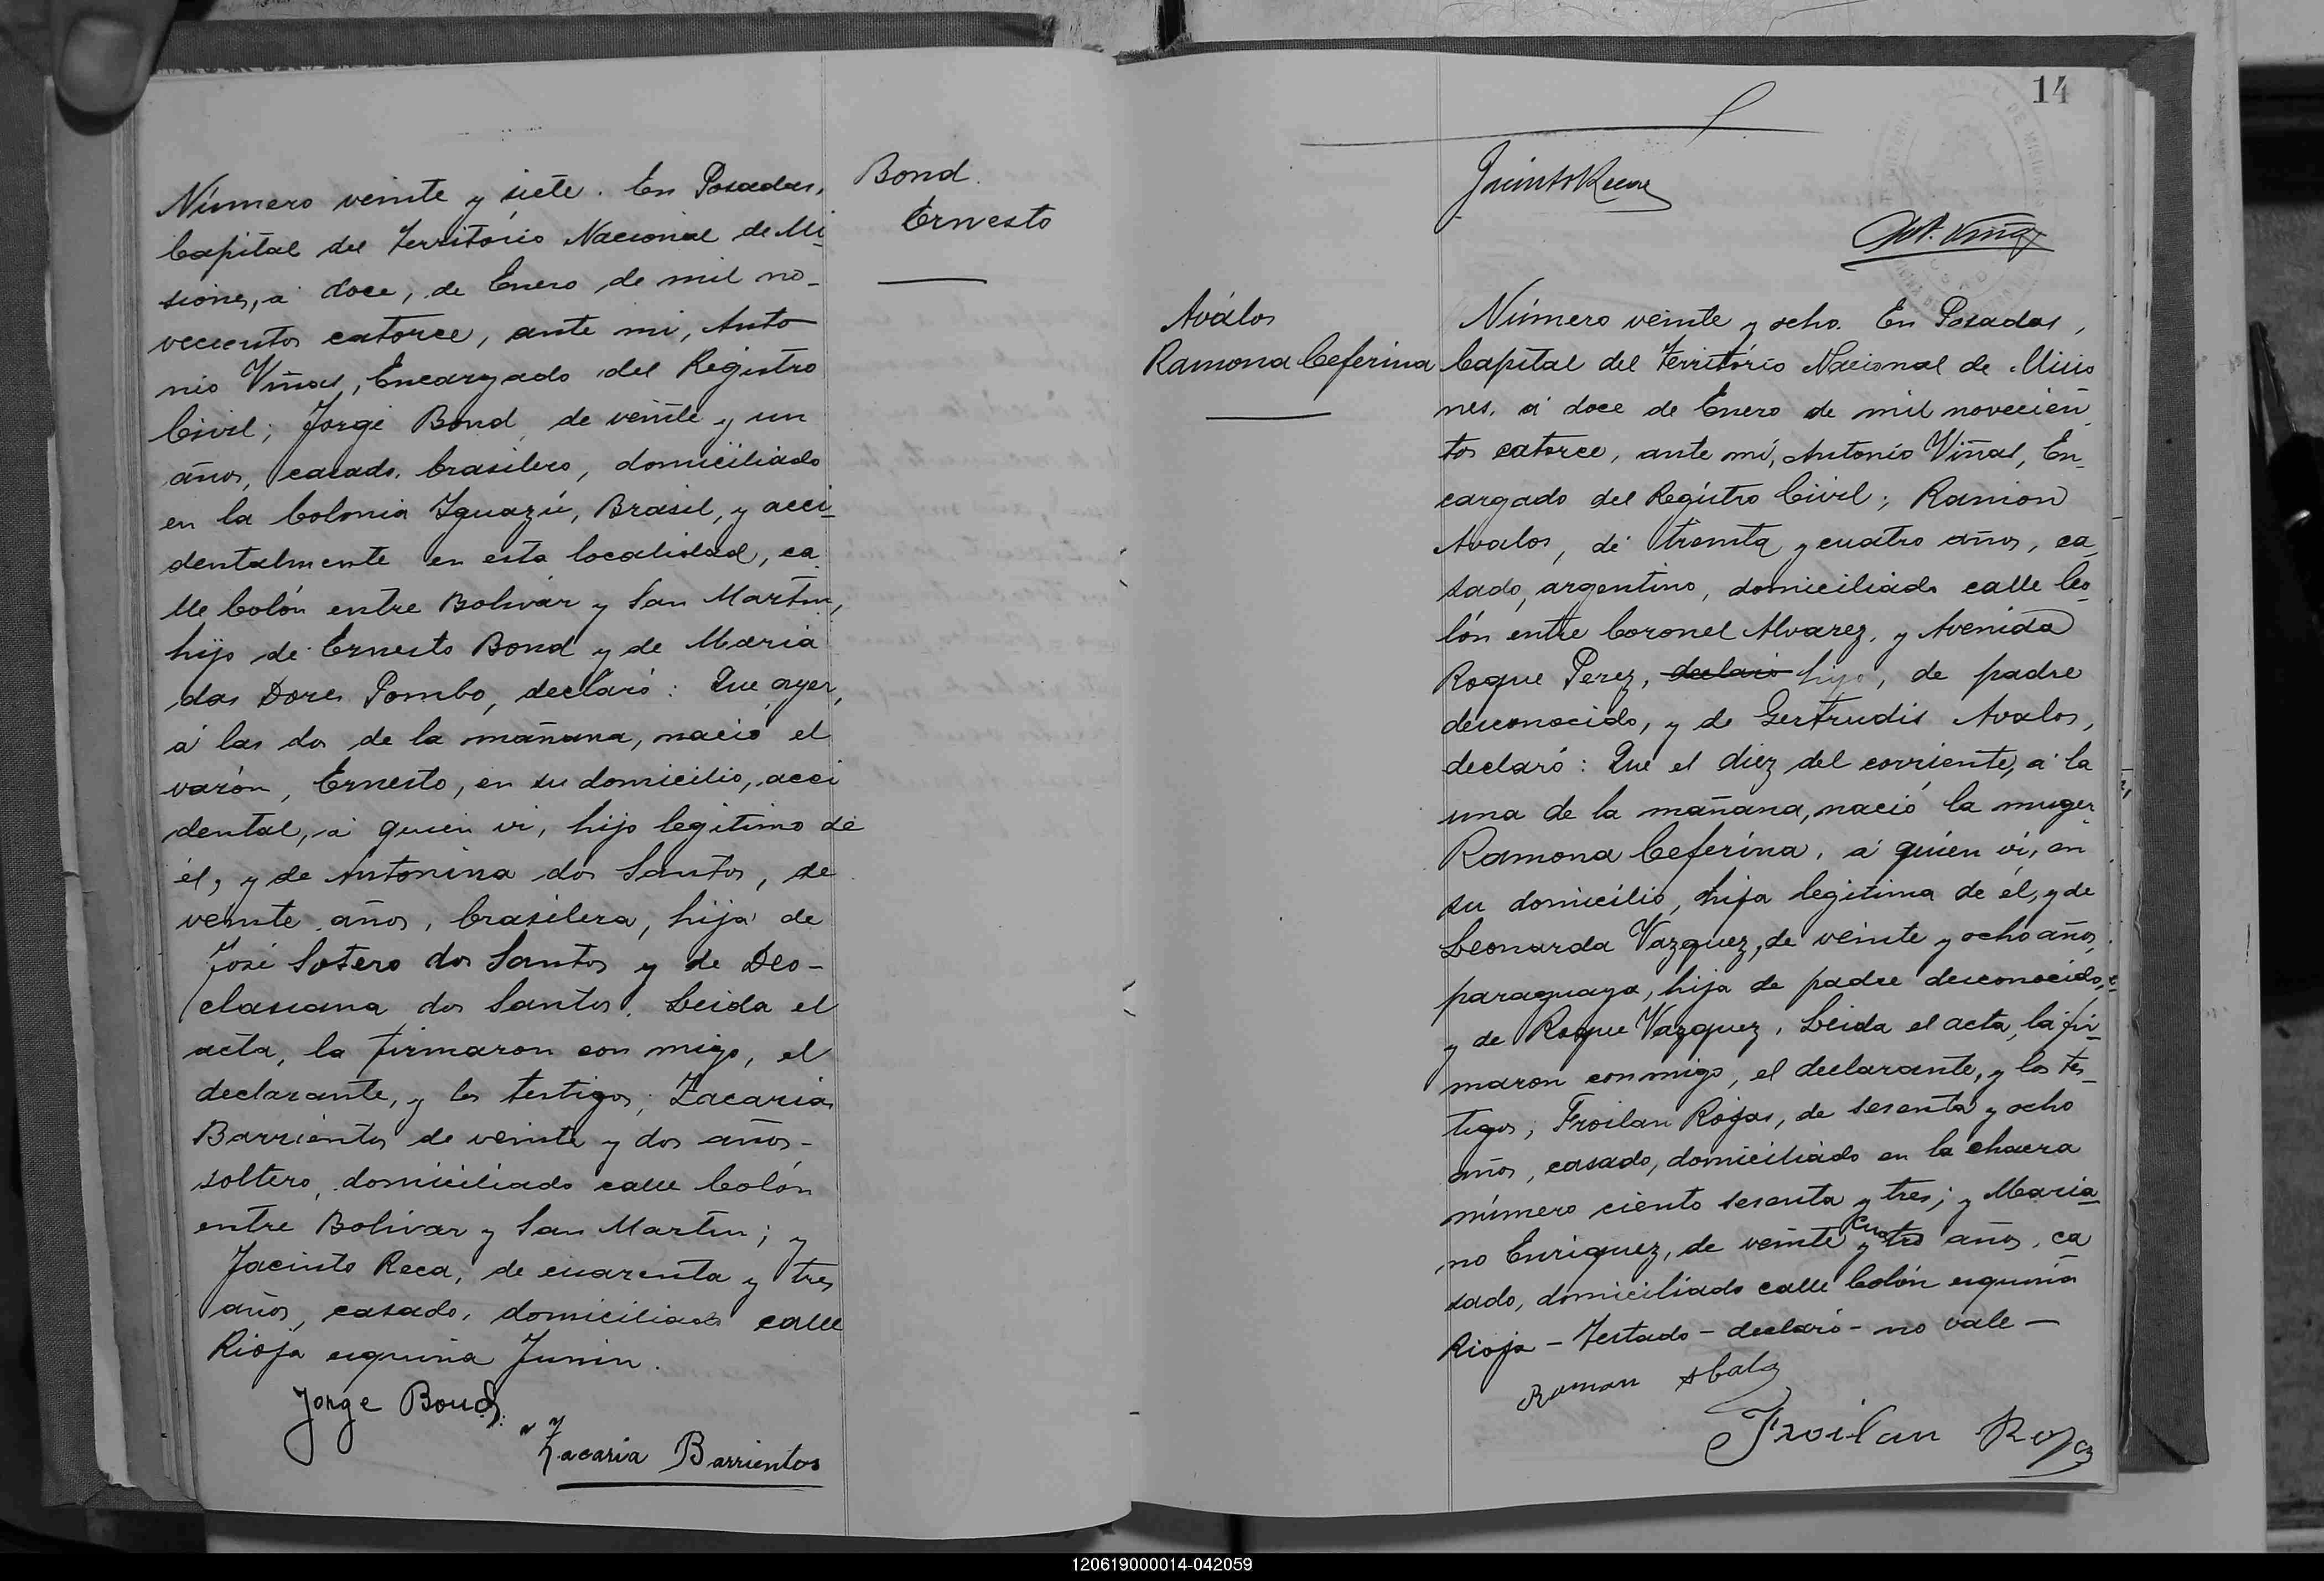 Bond.
Ernesto
Número veinte y siete. En Posadas,
Capital del Território Nacional de Mi
siones, á doce, de Enero de mil no-
vecientos catorce, ante mi, Anto
nio Viñas, Encargado del Registro
Civil; Jorge Bond, de veinte y un
años, casado, brasilero, domiciliado
en la Colonia Iguazú, Brasil, y acci-
dentalmente en esta localidad, ca
lle Colón entre Bolivar y San Martin,
hijo de Ernesto Bond y de Maria
das Dores Pombo, declaró: Que ayer,
á las dos de la mañana, nació el
varón, Ernesto, en su domicilio, acci
dental, á quien vi, hijo legitimo de
él, y de Antonina dos Santos, de
veinte años, brasilera, hija de
José Sotero dos Santos y de Deo-
clasiana dos Santos. Leida el
acta, la firmaron con migo, el
declarante, y los testigos; Zacarias
Barrientos de veinte y dos años-
soltero, domiciliado calle Colón
entre Bolivar y San Martin; y
Jacinto Reca, de cuarenta y tres
años, casado, domiciliado calle
Rioja esquina Junin.
Jorge Bond
Zacaria Barrientos
14
Ant. Viñas
Aválos
Ramona Ceferina
Número veinte y ocho. En Posadas,
Capital del Território Nacional de Misio
nes, á doce de Enero de mil novecien
tos catorce, ante mí, Antonio Viñas, En-
cargado del Registro Civil; Ramon
Avalos, de treinta y cuatro años, ca-
sado, argentino, domiciliado calle Co-
lón entre Coronel Alvarez, y Avenida
Roque Perez, declaró hijo, de padre
desconocido, y de Gertrudis Avalos,
declaró: Que el diez del corriente, á la
una de la mañana, nació la muger
Ramona Ceferina, á quien vi, en
su domicilio, hija legitima de él, y de
Leonarda Vazquez, de veinte y ocho años,
paraguaya, hija de padre desconocido,
y de Roque Vazquez. Leida el acta, la fir-
maron conmigo, el declarante, y los tes-
tigos; Froilan Rojas, de sesenta y ocho
años, casado, domiciliado en la chacra
número ciento sesenta y tres; y Maria-
no Enriquez, de veinte y cuatro años, ca
sado, domiciliado calle Colón esquina
Rioja - Testado - declaró - no vale -
Roman Abalo
Froilan Rojas
120619000014-042059